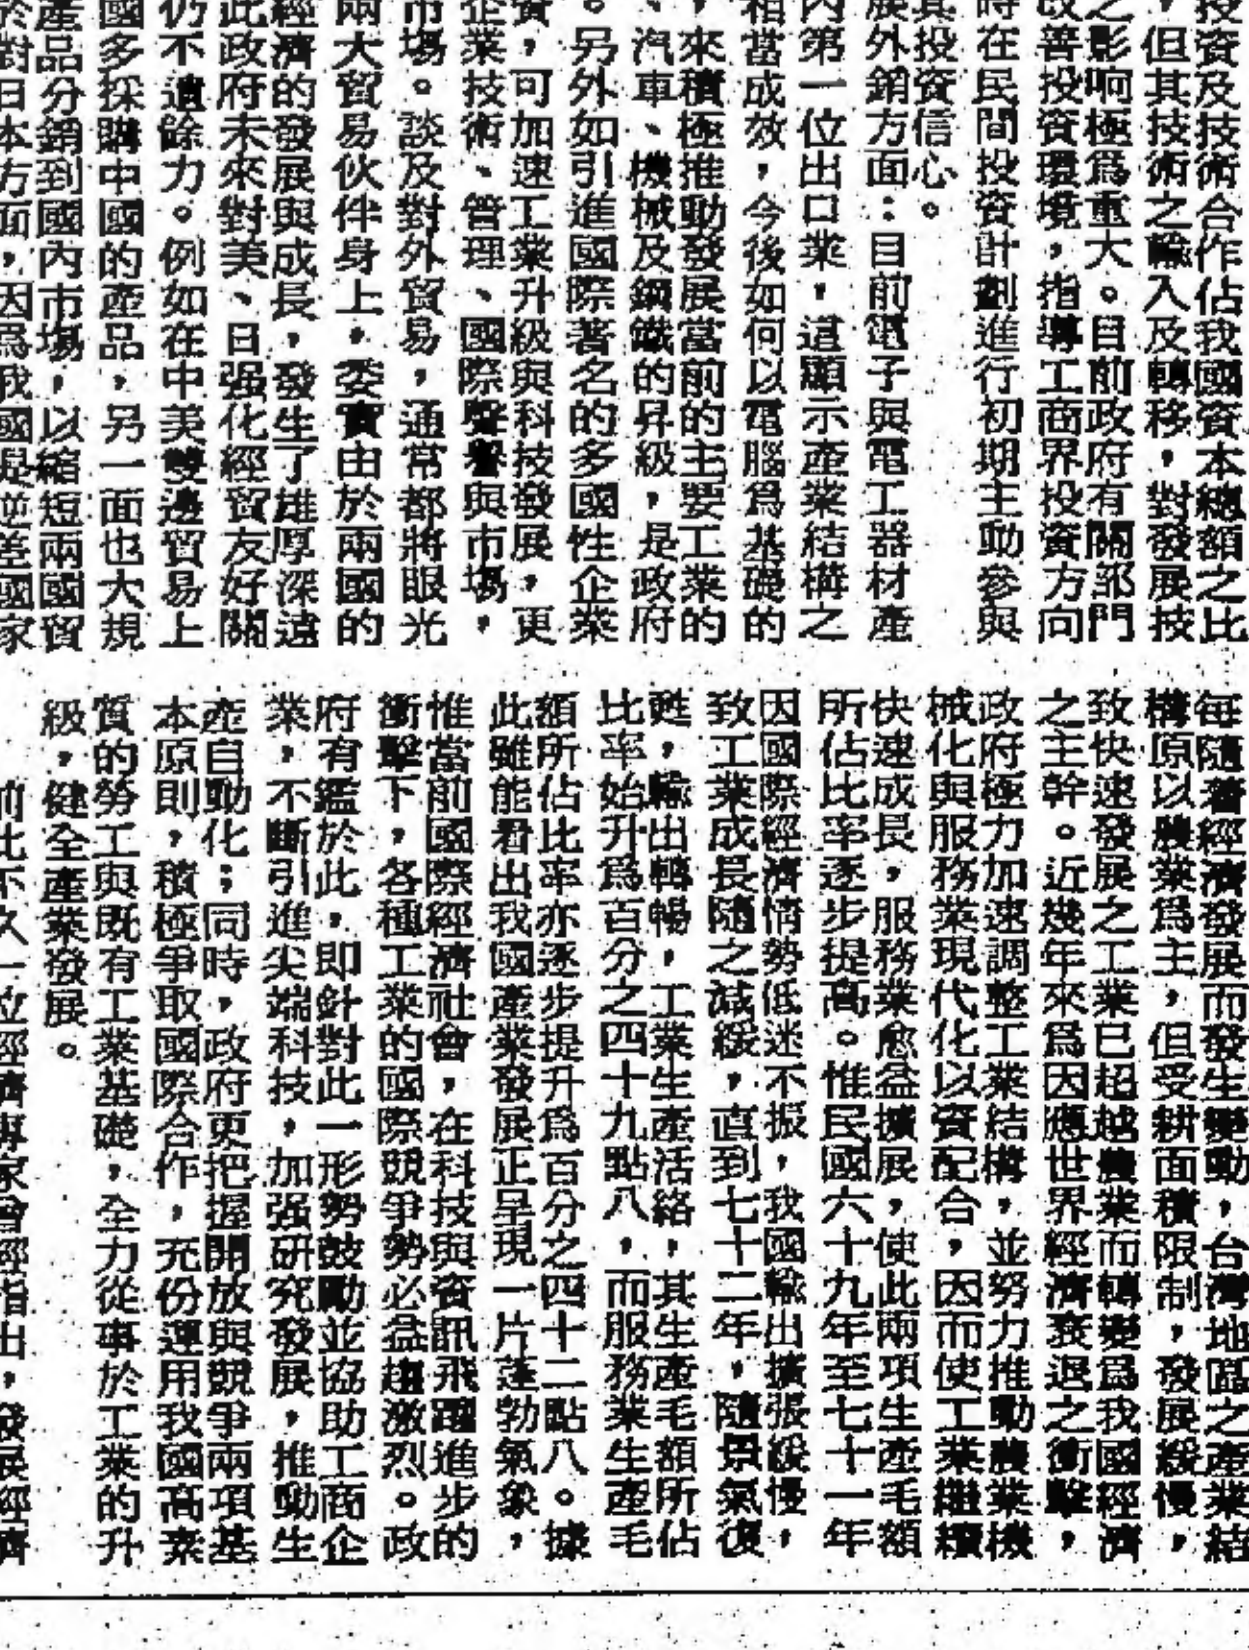 投資及技術合作佔我國資本總額之比
，但其技術之輸入及轉移，對發展技
之影响極爲重大。目前政府有關部門
改善投資環境，指導工商界投資方向
時在民間投資計劃進行初期主動參與
其投資信心。
展外銷方面：目前電子與電工器材產
內第一位出口業，這顯示產業結構之
相當成效，今後如何以電腦爲基礎的
，來積極推動發展當前的主要工業的
、汽車、機械及鋼鐵的昇級，是政府
。另外如引進國際著名的多國性企業
資，可加速工業升級與科技發展，更
企業技術、管理、國際聲譽與市場，
市場。談及對外貿易，通常都將眼光
兩大貿易伙伴身上，委實由於兩國的
經濟的發展與成長，發生了雄厚深遠
此政府未來對美、日强化經貿友好關
仍不遺餘力。例如在中美雙邊貿易上
國多採購中國的產品，另一面也大規
產品分銷到國內市場，以縮短兩國貿
於對日本方面，因爲我國是逆差國家
每隨著經濟發展而發生變動，台灣地區之產業結
構原以農業爲主，但受耕面積限制，發展緩慢，
致快速發展之工業已超越農業而轉變爲我國經濟
之主幹。近幾年來爲因應世界經濟衰退之衝擊，
政府極力加速調整工業結構，並努力推動農業機
械化與服務業現代化以資配合，因而使工業繼續
快速成長，服務業愈益擴展，使此兩項生產毛額
所佔比率逐步提高。惟民國六十九年至七十一年
因國際經濟情勢低迷不振，我國輸出擴張緩慢，
致工業成長隨之減緩，直到七十二年，隨景氣復
甦，輸出轉暢，工業生產活絡，其生產毛額所佔
比率始升爲百分之四十九點八，而服務業生產毛
額所佔比率亦逐步提升爲百分之四十二點八。據
此雖能看出我國產業發展正呈現一片蓬勃氣象，
惟當前國際經濟社會，在科技與資訊飛躍進步的
衝擊下，各種工業的國際競爭勢必益趨激烈。政
府有鑑於此，即針對此一形勢鼓勵並協助工商企
業，不斷引進尖端科技，加强研究發展，推動生
產自動化；同時，政府更把握開放與競爭兩項基
本原則，積極爭取國際合作，充份運用我國高素
質的勞工與既有工業基礎，全力從事於工業的升
級，健全產業發展。
前此不久一位經濟專家曾經指出，發展經濟